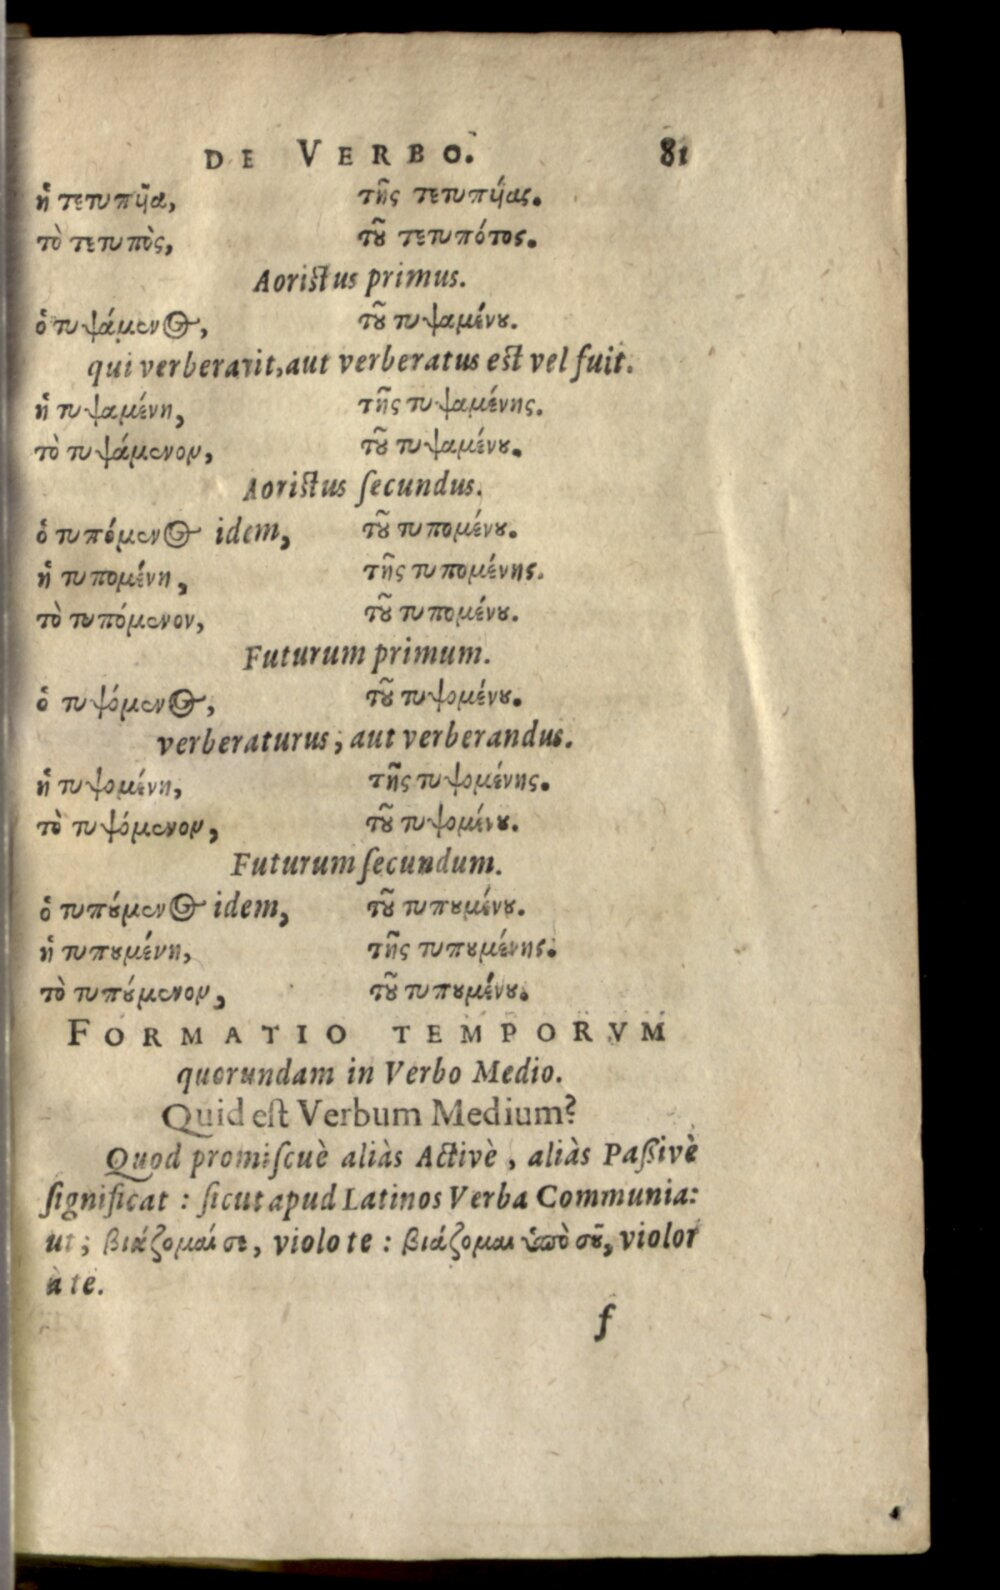 DE VERBO. 81
ἡ τετυπῦα, τῆς τετυπύας.
τὸ τετυπὸς, τοῦ τετυπότος.
Aoristus primus.
ὁ τυψάμενος, τοῦ τυψαμένου.
qui verberarit, aut verberatus est vel fuit.
ἡ τυψαμένη, τῆς τυψαμένης.
τὸ τυψάμενον, τοῦ τυψαμένου.
Aoristus ſecundus.
ὁ τυπόμενος idem, τοῦ τυπομένου.
ἡ τυπομένη, τῆς τυπομένης.
τὸ τυπόμενον, τοῦ τυπομένου.
Futurum primum.
ὁ τυψόμενος, τοῦ τυψομένου.
verberaturus, aut verberandus.
ἡ τυψομένη, τῆς τυψομένης.
τὸ τυψόμενον, τοῦ τυψομένου.
Futurum ſecundum.
ὁ τυπούμενος idem, τοῦ τυπουμένου.
ἡ τυπουμένη, τῆς τυπουμένης.
τὸ τυπούμενον, τοῦ τυπουμένου.
FORMATIO TEMPORVM
quorundam in Verbo Medio.
Quid eſt Verbum Medium?
Quod promiſcuè aliàs Activè, aliàs Paſſivè
ſignificat: ſicut apud Latinos Verba Communia:
ut; βιάζομαί σε, violo te: βιάζομαι ὑπὸ σοῦ, violor
à te.
f